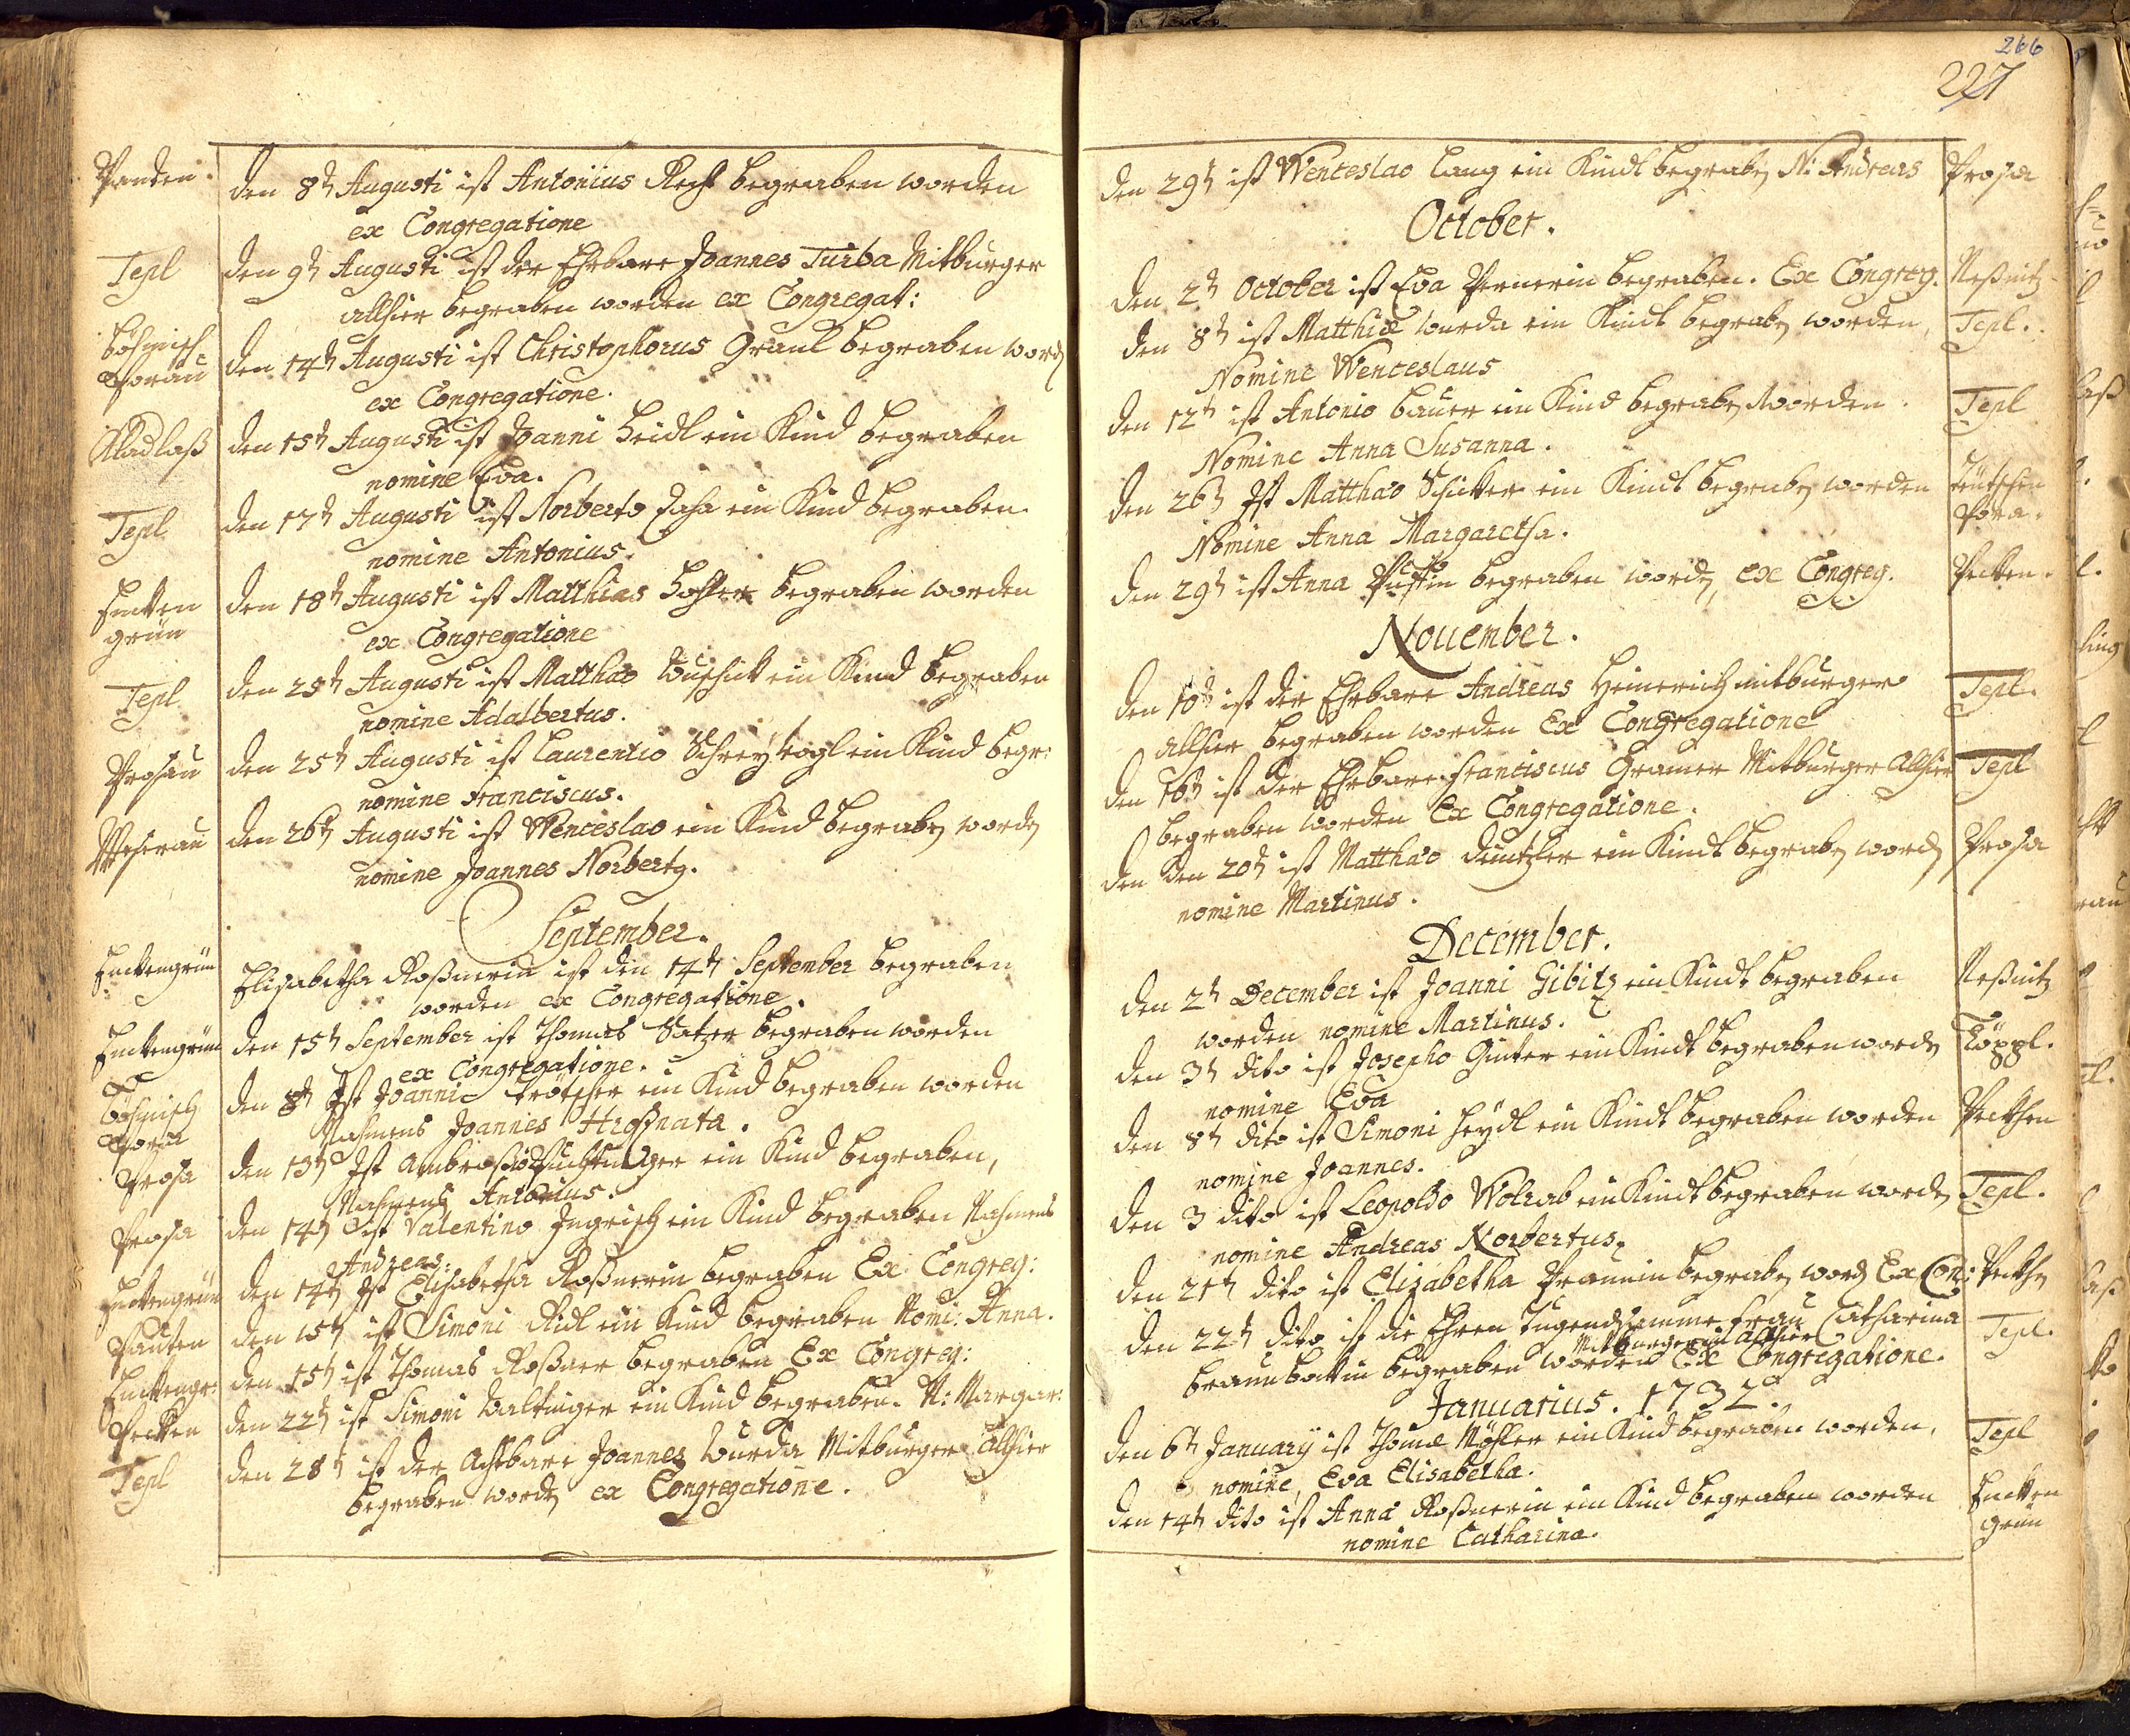 Pauten. den 8t Augusti ist Antonius Rech begraben worden
ex Congregatione
Tepl den 9t Augusti ist der Ehrbare Joannes Turba Mitburger
allhier begraben worden ex Congregat:
Böhmisch
Borau den 14t Augusti ist Christophorus Graul begraben word
ex Congregatione.
Kladlaß den 15t Augusti ist Joanni Heidl ein Kind begraben
nomine Eva.
Tepl den 17t Augusti ist Norberto ein Kind begraben
nomine Antonius.
Enkengrün den 18t Augusti ist Matthias begraben worden
ex Congregatione
Tepl den 25t Augusti ist Matthäo ein Kind begraben
nomine Adalbertus.
Prosau den 25t Augusti ist Laurentio Schreyvogl ein Kind begr:
nomine Franciscus.
Weserau den 26t Augusti ist Wenceslao ein Kind begraben worden
nomine Joannes Norbertg.
September.
Enkengrün Elisabetha Roßnerin ist den 14t September begraben
worden ex Congregatione.
Enkengrün den 15t September ist Thomas begraben worden
ex Congregatione.
Böhmisch
Bora den 8t Ist Joanni Trötscher ein Kind begraben worden
Nahmens Joannes Hroßnata.
Prosa den 13t Ist Ambrosio ein Kind begraben,
Nahmens Antonius.
Prosa den 14t ist Valentino Ingrisch ein Kind begraben Nahmens
Andreas:
Enkengrün den 14t Ist Elisabetha Roßnerin begraben Ex Congreg:
Pauten den 15t ist Simoni Ridl ein Kind begraben Nomi: Anna.
Enkengr: den 15t ist Thomas Roßner begraben Ex Congreg:
Pekten den 22t ist Simoni Baltinger ein Kind begraben. N: Margar:
Tepl den 28t ist der Achtbare Joannes Wurda Mitburger Allhier
begraben worden ex Congregatione.
266
227
den 29t ist Wenceslao Lang ein Kindt begraben N: Andreas Prosa
October.
den 2t October ist Eva Pernerin begraben. Ex Congreg. Neßnitz
den 8t ist Matthiæ Wurda ein Kindt begraben worden, Tepl.
Nomine Wenceslaus
den 12t ist Antonio Bauer ein Kind begraben worden. Tepl
Nomine Anna Susanna.
den 26t Ist Matthäo Schicker ein Kindt begraben worden Teutschen
Bora.
Nomine Anna Margaretha.
den 29t ist Anna begraben worden, ex Congreg. Pekten.
Nouember.
den 10t ist der Ehrbare Andreas Heinerich mitburger Tepl.
allhier begraben worden Ex Congregatione
den 16t ist der Ehrbare Franciscus Gramer Mitburger Allhier Tepl
begraben worden Ex Congregatione.
den den 20t ist Matthäo ein Kindt begraben word Prosa
nomine Martinus.
December.
den 2t December ist Joanni Gibitz ein Kindt begraben Neßnitz
worden nomine Martinus.
den 3t dito ist Josepho Ginter ein Kindt begraben worden Töppl.
nomine Eva
den 8t dito ist Simoni Heydl ein Kindt begraben worden Pekthen
nomine Joannes.
den 3 dito ist Leopoldo Wolrab ein Kindt begraben worden Tepl.
nomine Andreas Norbertus.
den 21t dito ist Elizabetha Braunin begraben word Ex Con: Pekthen
den 22t dito ist die Ehren Tugendsamme Frau Catharina Tepl.
Mitburgerin allhier
begraben worden Ex Congregatione.
Januarius. 1732.
den 6t January ist Thomæ Möhler ein Kind begraben worden, Tepl
nomine, Eva Elisabetha.
den 14t dito ist Anna Roßnerin ein Kind begraben worden Enken
grün
nomine Catharina.